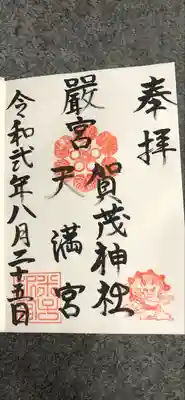 奉拝
賀茂神社
嚴宮天満宮
令和弐年八月二十五日